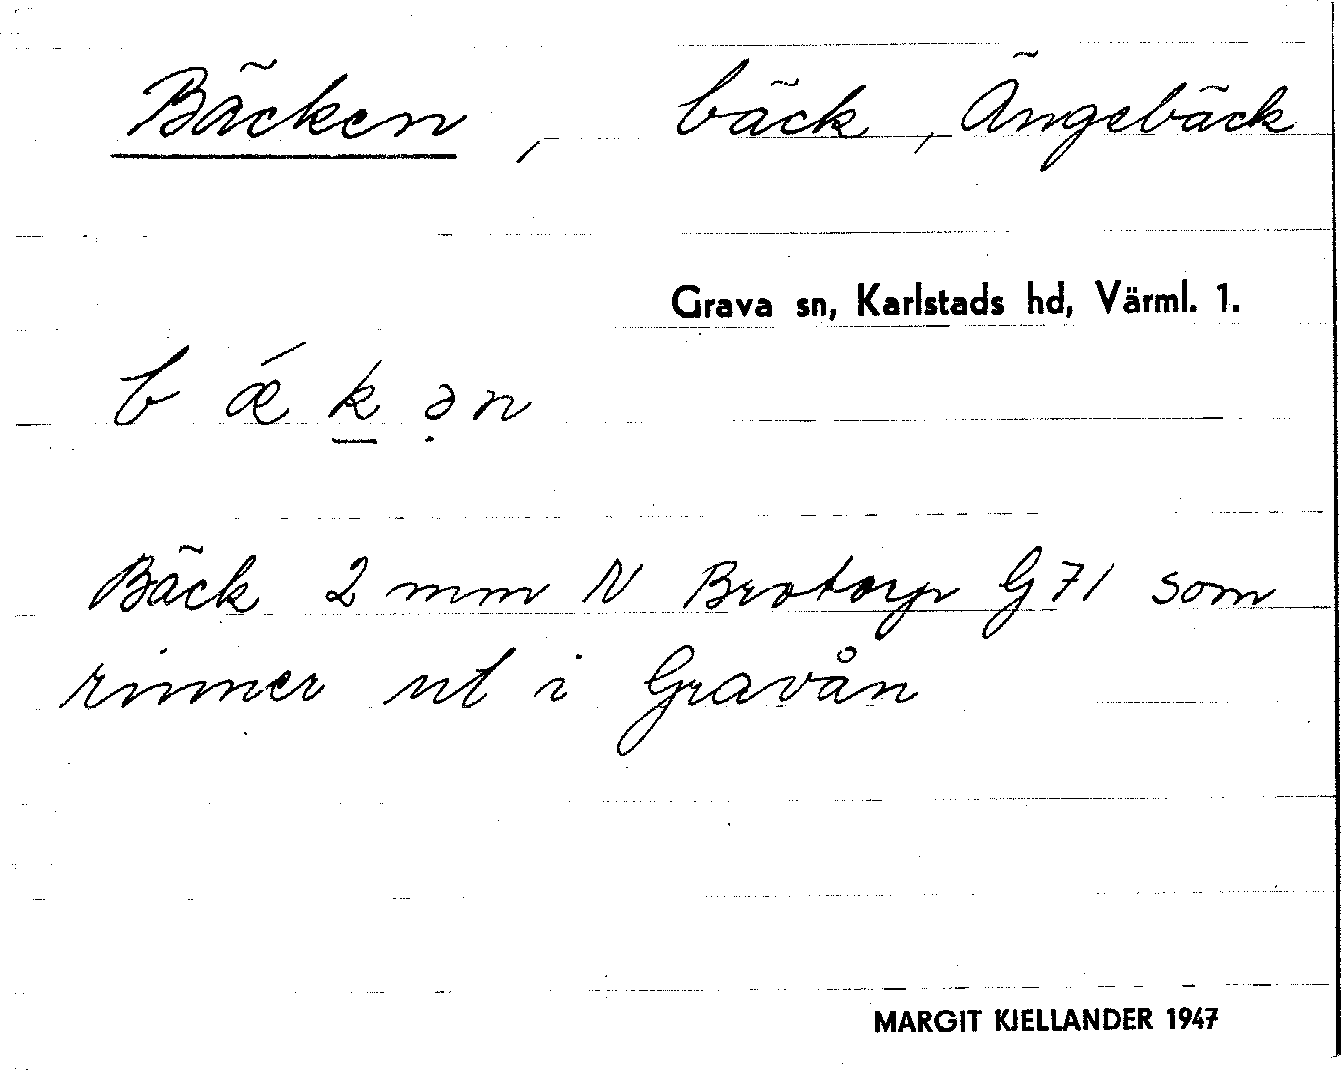 Bäcken, bäck, Ängebäck
Grava sn, Karlstads hd, Värml. 1.
b ǽ k̲ ə̣ n
Bäck 2 mm N Brotorp G 71 som
rinner ut i Gravån
MARGIT KJELLANDER 1947